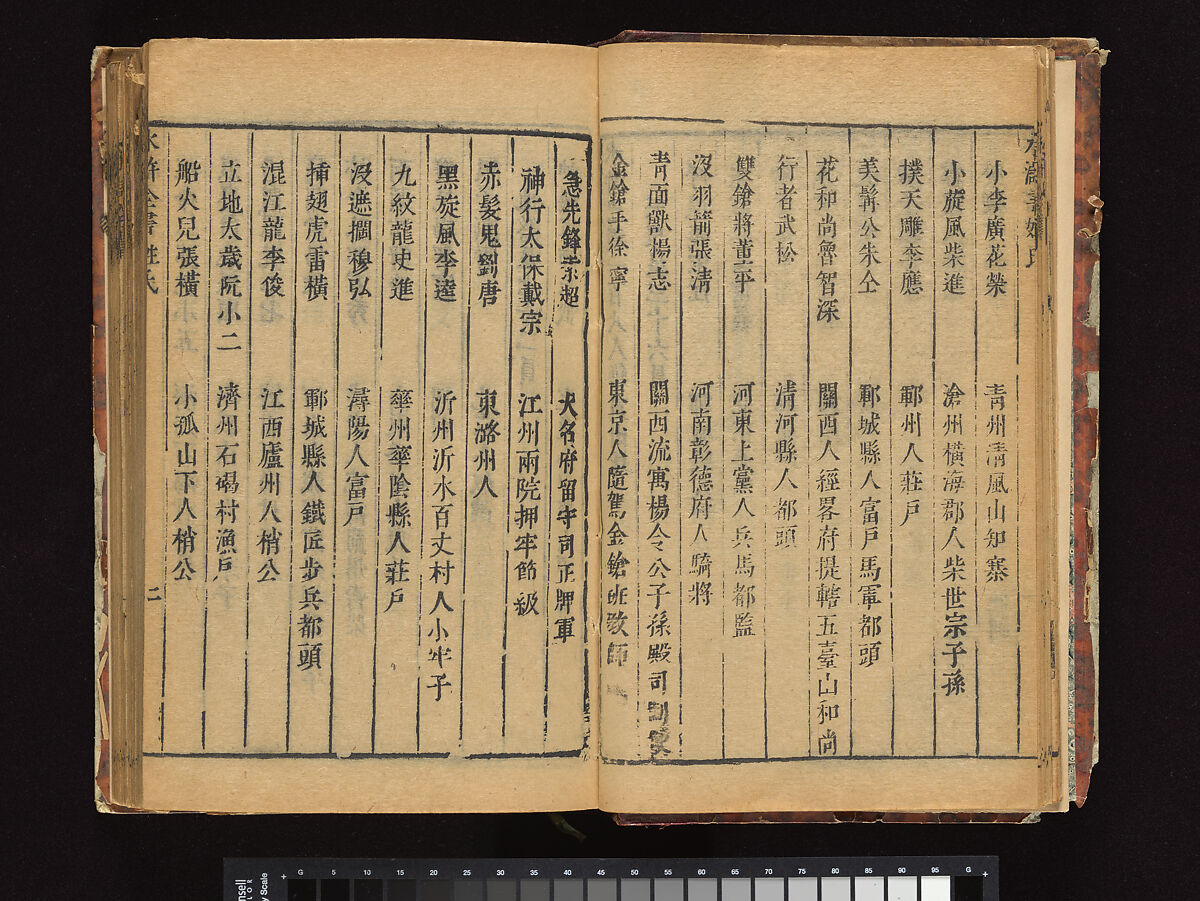 小李廣花榮 青州清風山知寨
小旋風柴進 滄州橫海郡人柴世宗子孫
撲天雕李應 鄆州人莊戶
美髯公朱仝 鄆城縣人富戶馬軍都頭
花和尚魯智深 關西人經畧府提轄五臺山和尚
行者武松 清河縣人都頭
雙鎗將董平 河東上黨人兵馬都監
沒羽箭張清 河南彰德府人騎將
青面獸楊志 關西流寓楊令公子孫殿司制使
金鎗手徐寧 東京人隨駕金鎗班敎師
急先鋒索超 大名府留守司正牌軍
神行太保戴宗 江州兩院押牢節級
赤髮鬼劉唐 東潞州人
黑旋風李逵 沂州沂水百丈村人小牢子
九紋龍史進 華州華陰縣人莊戶
沒遮攔穆弘 潯陽人富戶
插翅虎雷橫 鄆城縣人鐵匠步兵都頭
混江龍李俊 江西廬州人梢公
立地太歲阮小二 濟州石碣村漁戶
船火兒張橫 小孤山下人梢公
水滸全書姓氏 二
G 5 10 15 20 25 30 35 40 45 50 55 60 65 70 75 80 85 90 95 G